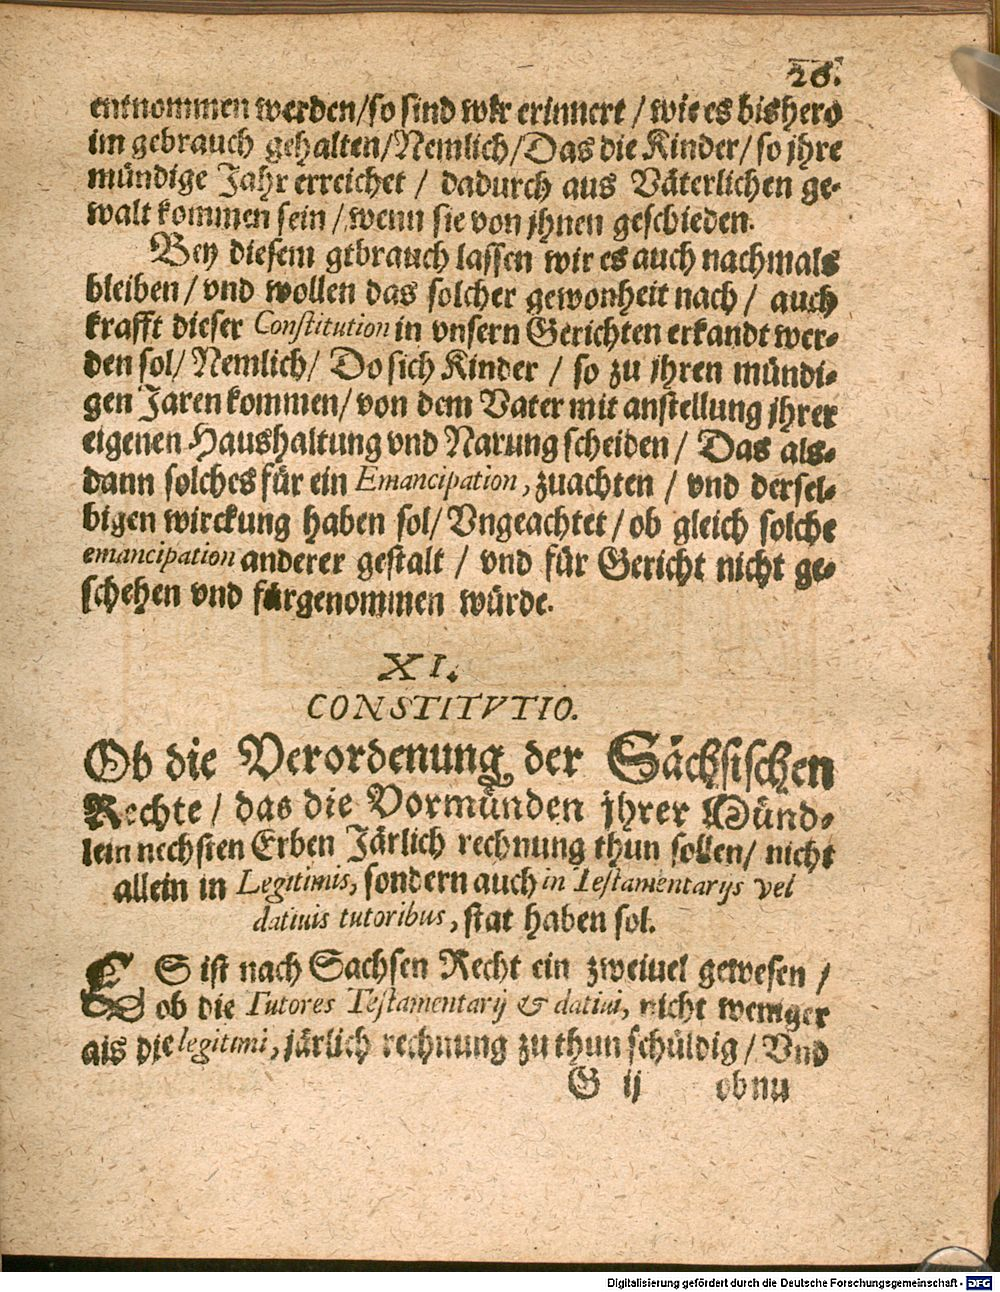 26.
entnommen werden/so sind wir erinnert / wie es bishero
im gebrauch gehalten/Nemlich/Das die Kinder/ so jhre
mündige Jahr erreichet / dadurch aus Väterlichen ge-
walt kommen sein / wenn sie von jhnen geschieden.
Bey diesem gebrauch lassen wir es auch nachmals
bleiben / vnd wollen das solcher gewonheit nach / auch
krafft dieser Constitution in vnsern Gerichten erkandt wer-
den sol/ Nemlich/ Do sich Kinder / so zu jhren mündi-
gen Jaren kommen/ von dem Vater mit anstellung jhrer
eigenen Haushaltung vnd Narung scheiden / Das als-
dann solches für ein Emancipation, zuachten / vnd dersel-
bigen wirckung haben sol/ Vngeachtet / ob gleich solche
emancipation anderer gestalt / vnd für Gericht nicht ge-
schehen vnd fürgenommen würde.
XI.
CONSTITVTIO.
Ob die Verordenung der Sächsischen
Rechte / das die Vormünden jhrer Münd-
lein nechsten Erben Järlich rechnung thun sollen/ nicht
allein in Legitimis, sondern auch in Testamentarijs vel
datiuis tutoribus, stat haben sol.
ES ist nach Sachsen Recht ein zweiuel gewesen /
ob die Tutores Testamentarij & datiui, nicht weniger
als die legitimi, järlich rechnung zu thun schüldig / Vnd
G ij obnu
Digitalisierung gefördert durch die Deutsche Forschungsgemeinschaft - DFG